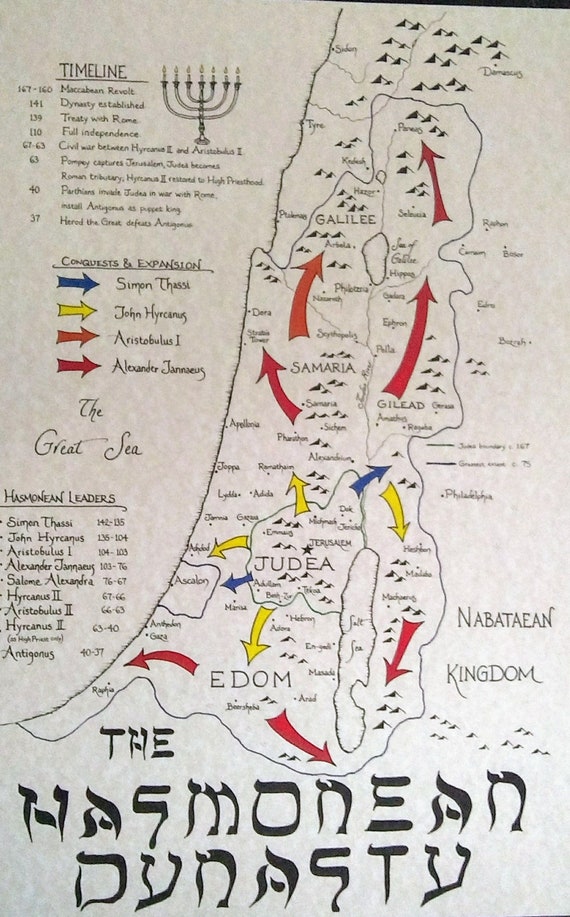 TIMELINE
167-160 Maccabean Revolt.
141 Dynasty established
139 Treaty with Rome
110 Full independence
67-63 Civil war between Hyrcanus II and Aristobulus II
63 Pompey captures Jerusalem, Judea becomes
Roman tributary; Hyrcanus II restored to High Priesthood.
40 Parthians invade Judea in war with Rome,
install Antigonus as puppet king
37 Herod the Great defeats Antigonus
CONQUESTS & EXPANSION
Simon Thassi
John Hyrcanus
Aristobulus I
Alexander Jannaeus
The
Great Sea
HASMONEAN LEADERS
Simon Thassi 142-135
John Hyrcanus 135-104
Aristobulus I 104-103
Alexander Jannaeus 103-76
Salome Alexandra 76-67
Hyrcanus II 67-66
Aristobulus II 66-63
Hyrcanus II 63-40
(as High Priest only)
Antigonus 40-37
Sidon
Damascus
Tyre
Paneas
Kedesh
Hazor
Ptolemais
GALILEE
Seleucia
Raphon
Arbela
Sea of
Galilee
Hippus
Carnaim
Bosor
Philoteria
Nazareth
Gadara
Edrei
Dora
Stratos
Tower
Ephron
Scythopolis
Bozrah
Pella
SAMARIA
Jordan River
GILEAD
Gerasa
Samaria
Amathus
Apollonia
Sichem
Ragaba
Pharathon
Judea boundary c. 167
Greatest extent c. 75
Alexandrium
Joppa
Ramathaim
Lydda
Adida
Philadelphia
Dok
Jamnia
Gazara
Michmash
Jericho
Emmaus
Ashdod
JERUSALEM
Heshbon
JUDEA
Madaba
Ascalon
Adullam
Beth-Zur
Tekoa
Machaerus
Marisa
Hebron
Adora
Salt
Sea
Anthedon
Gaza
En-gedi
NABATAEAN
KINGDOM
Masada
EDOM
Raphia
Arad
Beersheba
THE
HASMONEAN
DYNASTY